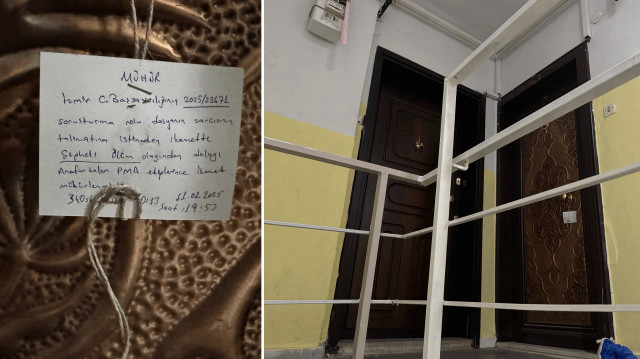 MÜHÜR
İzmir C. Başsavcılığının 2025/23671
soruşturma nolu dosyanın savcısının
talimatına istineden ikamette
Şüpheli Ölüm olayından dolayı
Anafartalar PMA ekiplerince ikamet
mühürlen
11.02.2025
Saat :19:53